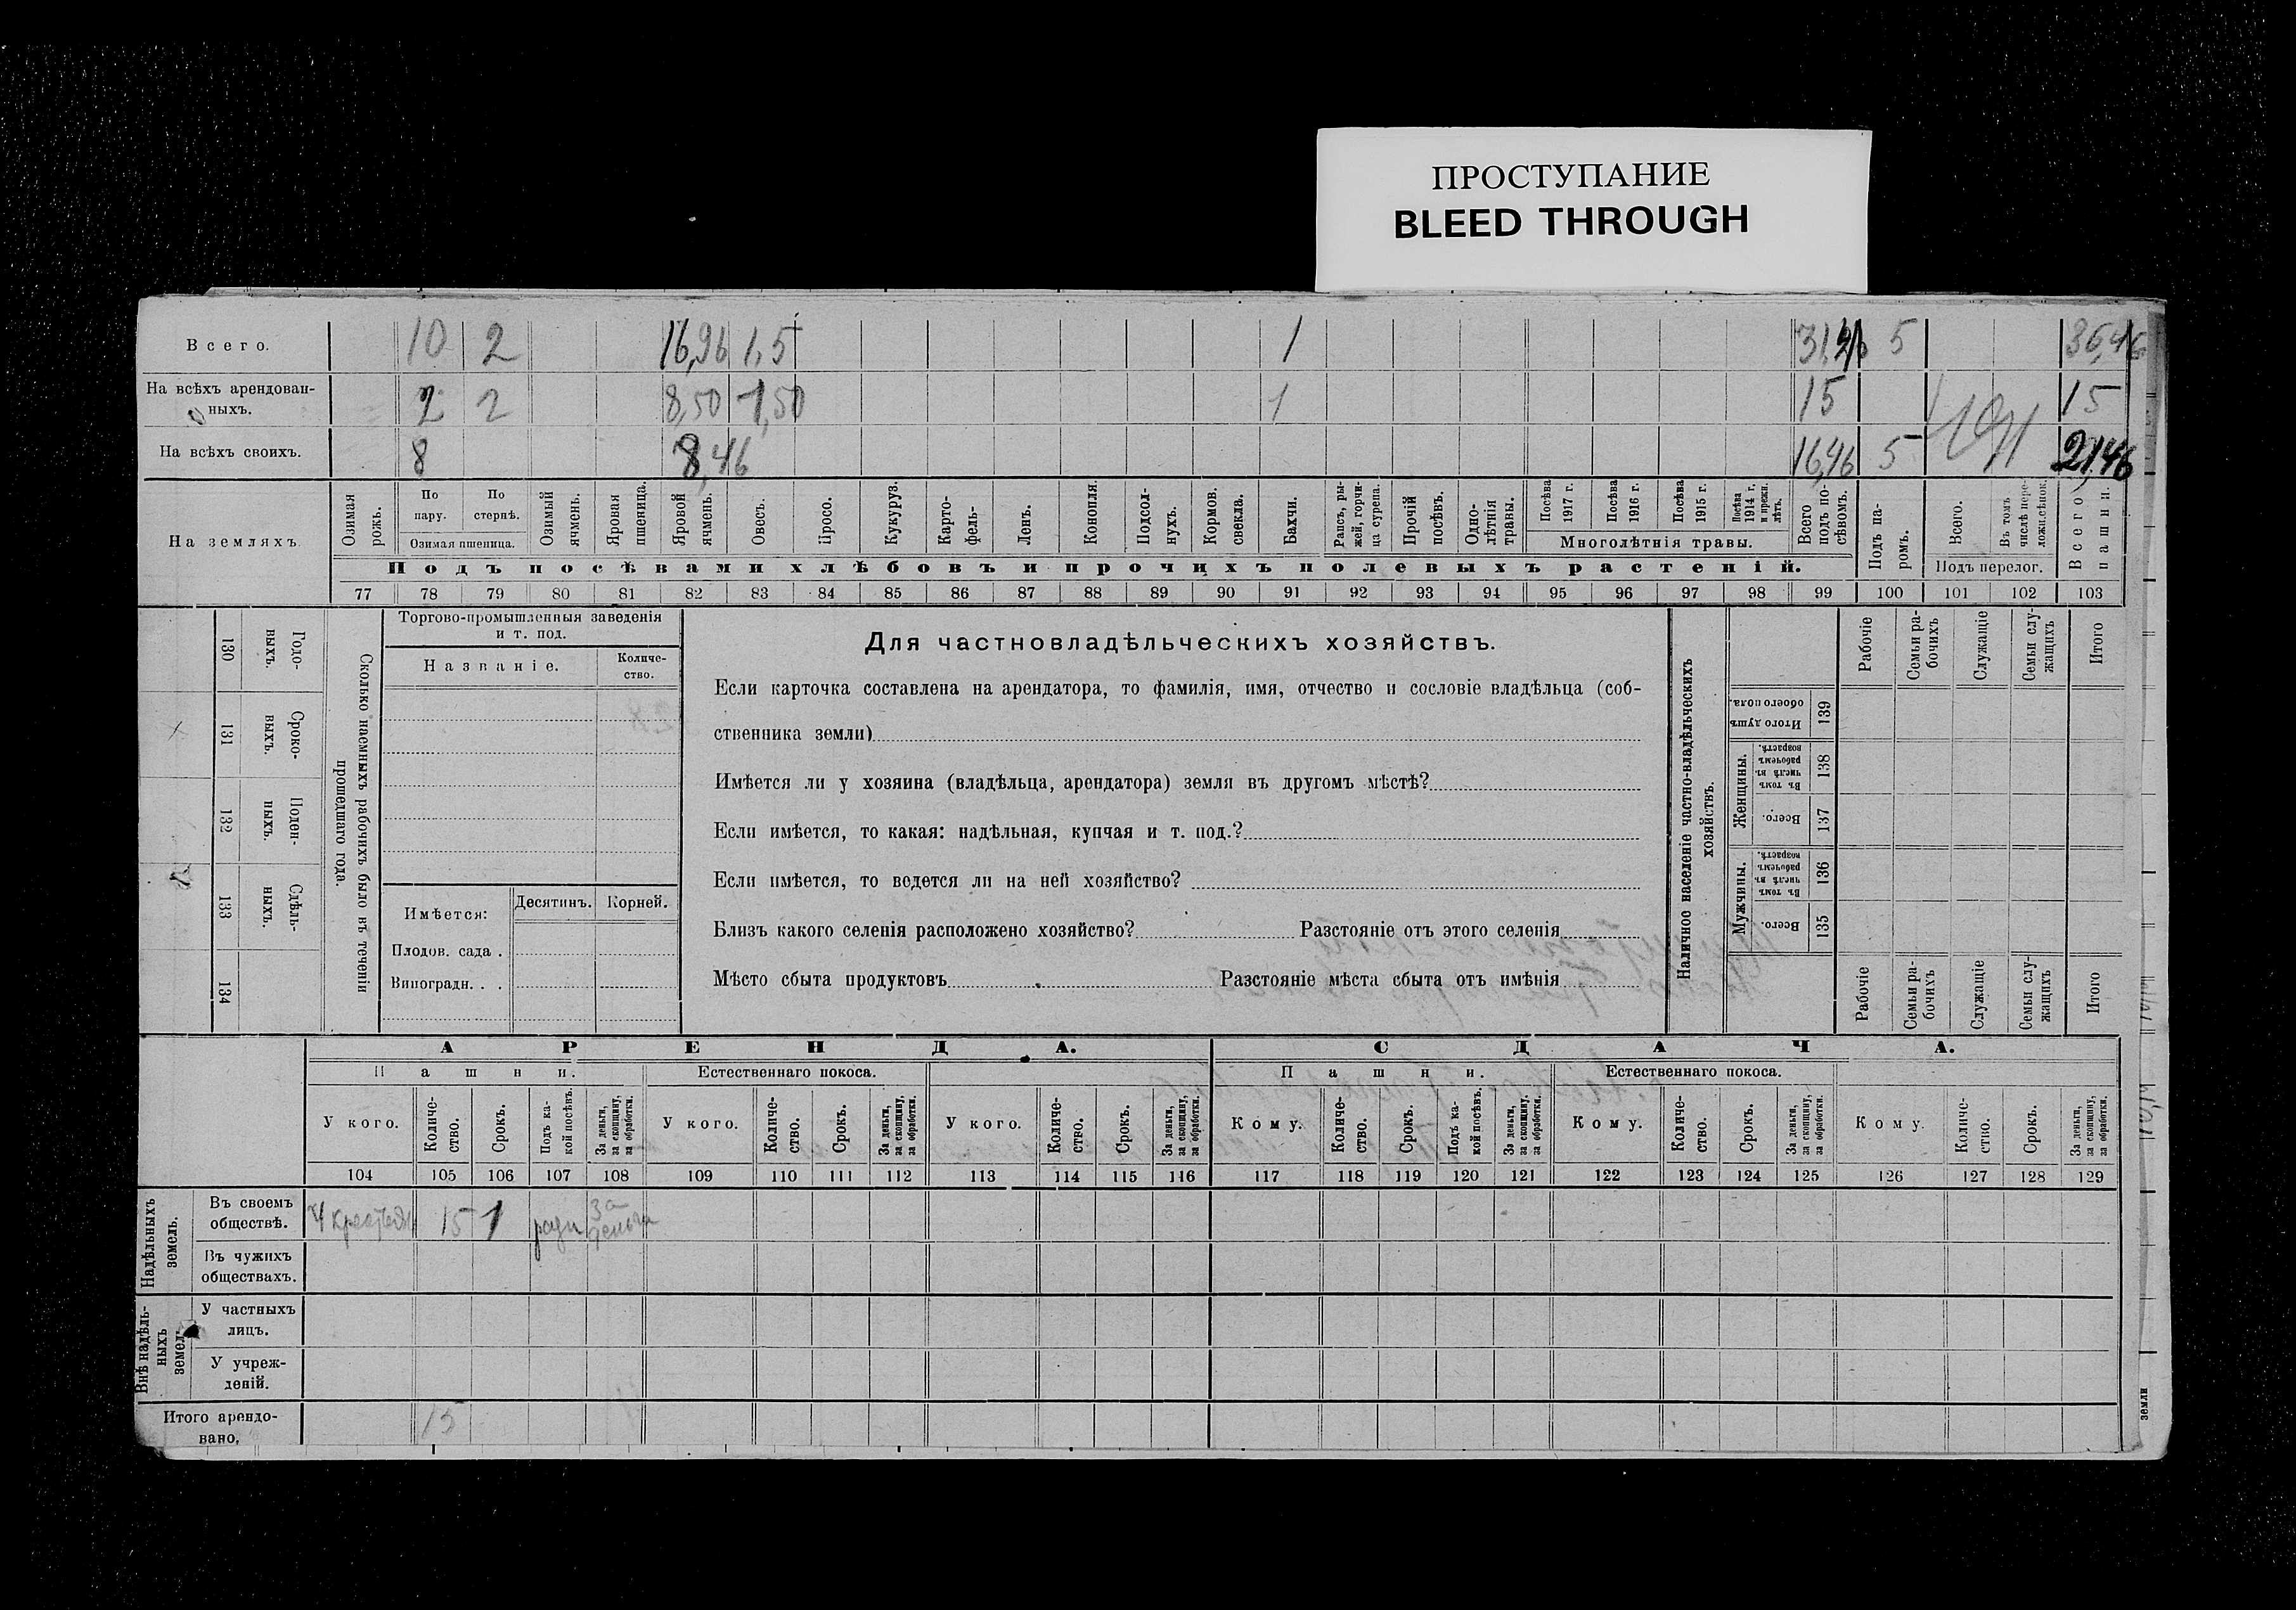 ПРОСТУПАНИЕ
BLEED THROUGH
Всего. 10 2 16,96 1,5 1 31,46 5 36,46
На всѣхъ арендован-
ныхъ. 2 2 8,50 1,50 1 15 15
На всѣхъ своихъ. 8 8,46 16,46 5 21,46
На земляхъ.
Озимая рожь.
По пару.
По стернѣ.
Озимая пшеница.
Озимый ячмень.
Яровая пшеница.
Яровой ячмень.
Овесъ.
Просо.
Кукуруз.
Карто-
фель.
Ленъ.
Конопля.
Подсол-
нухъ.
Кормов. свекла.
Бахчи.
Рапсъ, ры-
жей, горчи-
ца сурепа.
Прочій посѣвъ.
Одно-
лѣтнія травы.
Посѣва 1917 г.
Посѣва 1916 г.
Посѣва 1915 г.
Посѣва 1914 г. и прежн. лѣтъ.
Многолѣтнія травы.
Всего подъ по-
сѣвомъ.
Подъ па-
ромъ.
Всего.
Въ томъ числѣ пере-
ложн. сѣнок.
Подъ перелог.
Всего пашни.
Подъ посѣвами хлѣбовъ и прочихъ полевыхъ растеній.
77 78 79 80 81 82 83 84 85 86 87 88 89 90 91 92 93 94 95 96 97 98 99 100 101 102 103
130 Годо-
выхъ.
131 Сроко-
выхъ.
132 Поден-
ныхъ.
133 Сдѣль-
ныхъ.
134
Сколько наемныхъ рабочихъ было въ теченіи
прошедшаго года.
Торгово-промышленныя заведенія
и т. под.
Названіе.
Количе-
ство.
Имѣется:
Десятинъ. Корней.
Плодов. сада .
Виноградн. . .
Для частновладѣльческихъ хозяйствъ.
Если карточка составлена на арендатора, то фамилія, имя, отчество и сословіе владѣльца (соб-
ственника земли)
Имѣется ли у хозяина (владѣльца, арендатора) земля въ другомъ мѣстѣ?
Если имѣется, то какая: надѣльная, купчая и т. под.?
Если имѣется, то ведется ли на ней хозяйство?
Близъ какого селенія расположено хозяйство? Разстояніе отъ этого селенія
Мѣсто сбыта продуктовъ Разстояніе мѣста сбыта отъ имѣнія
Наличное населеніе частно-владѣльческихъ
хозяйствъ.
Рабочіе
Семьи ра-
бочихъ
Служащіе
Семьи слу-
жащихъ
Итого
Итого душъ обоего пола. 139
Женщины.
Въ томъ числѣ въ рабочемъ возрастѣ. 138
Всего. 137
Мужчины.
Въ томъ числѣ въ рабочемъ возрастѣ. 136
Всего. 135
Рабочіе
Семьи ра-
бочихъ
Служащіе
Семьи слу-
жащихъ
Итого
АРЕНДА. СДАЧА.
Пашни. Естественнаго покоса. Пашни. Естественнаго покоса.
У кого. Количе-
ство. Срокъ. Подъ ка-
кой посѣвъ. За деньги, за скопщину, за обработки.
У кого. Количе-
ство. Срокъ. За деньги, за скопщину, за обработки.
У кого. Количе-
ство. Срокъ. За деньги, за скопщину, за обработки.
Кому. Количе-
ство. Срокъ. Подъ ка-
кой посѣвъ. За деньги, за скопщину, за обработки.
Кому. Количе-
ство. Срокъ. За деньги, за скопщину, за обработки.
Кому. Количе-
ство. Срокъ. За деньги, за скопщину, за обработки.
104 105 106 107 108 109 110 111 112 113 114 115 116 117 118 119 120 121 122 123 124 125 126 127 128 129
Надѣльныхъ
земель.
Въ своемъ
обществѣ. 15 1 за
деньги
Въ чужихъ
обществахъ.
Внѣ надѣль-
ныхъ
земель
У частныхъ
лицъ.
У учреж-
деній.
Итого арендо-
вано, 15
земли